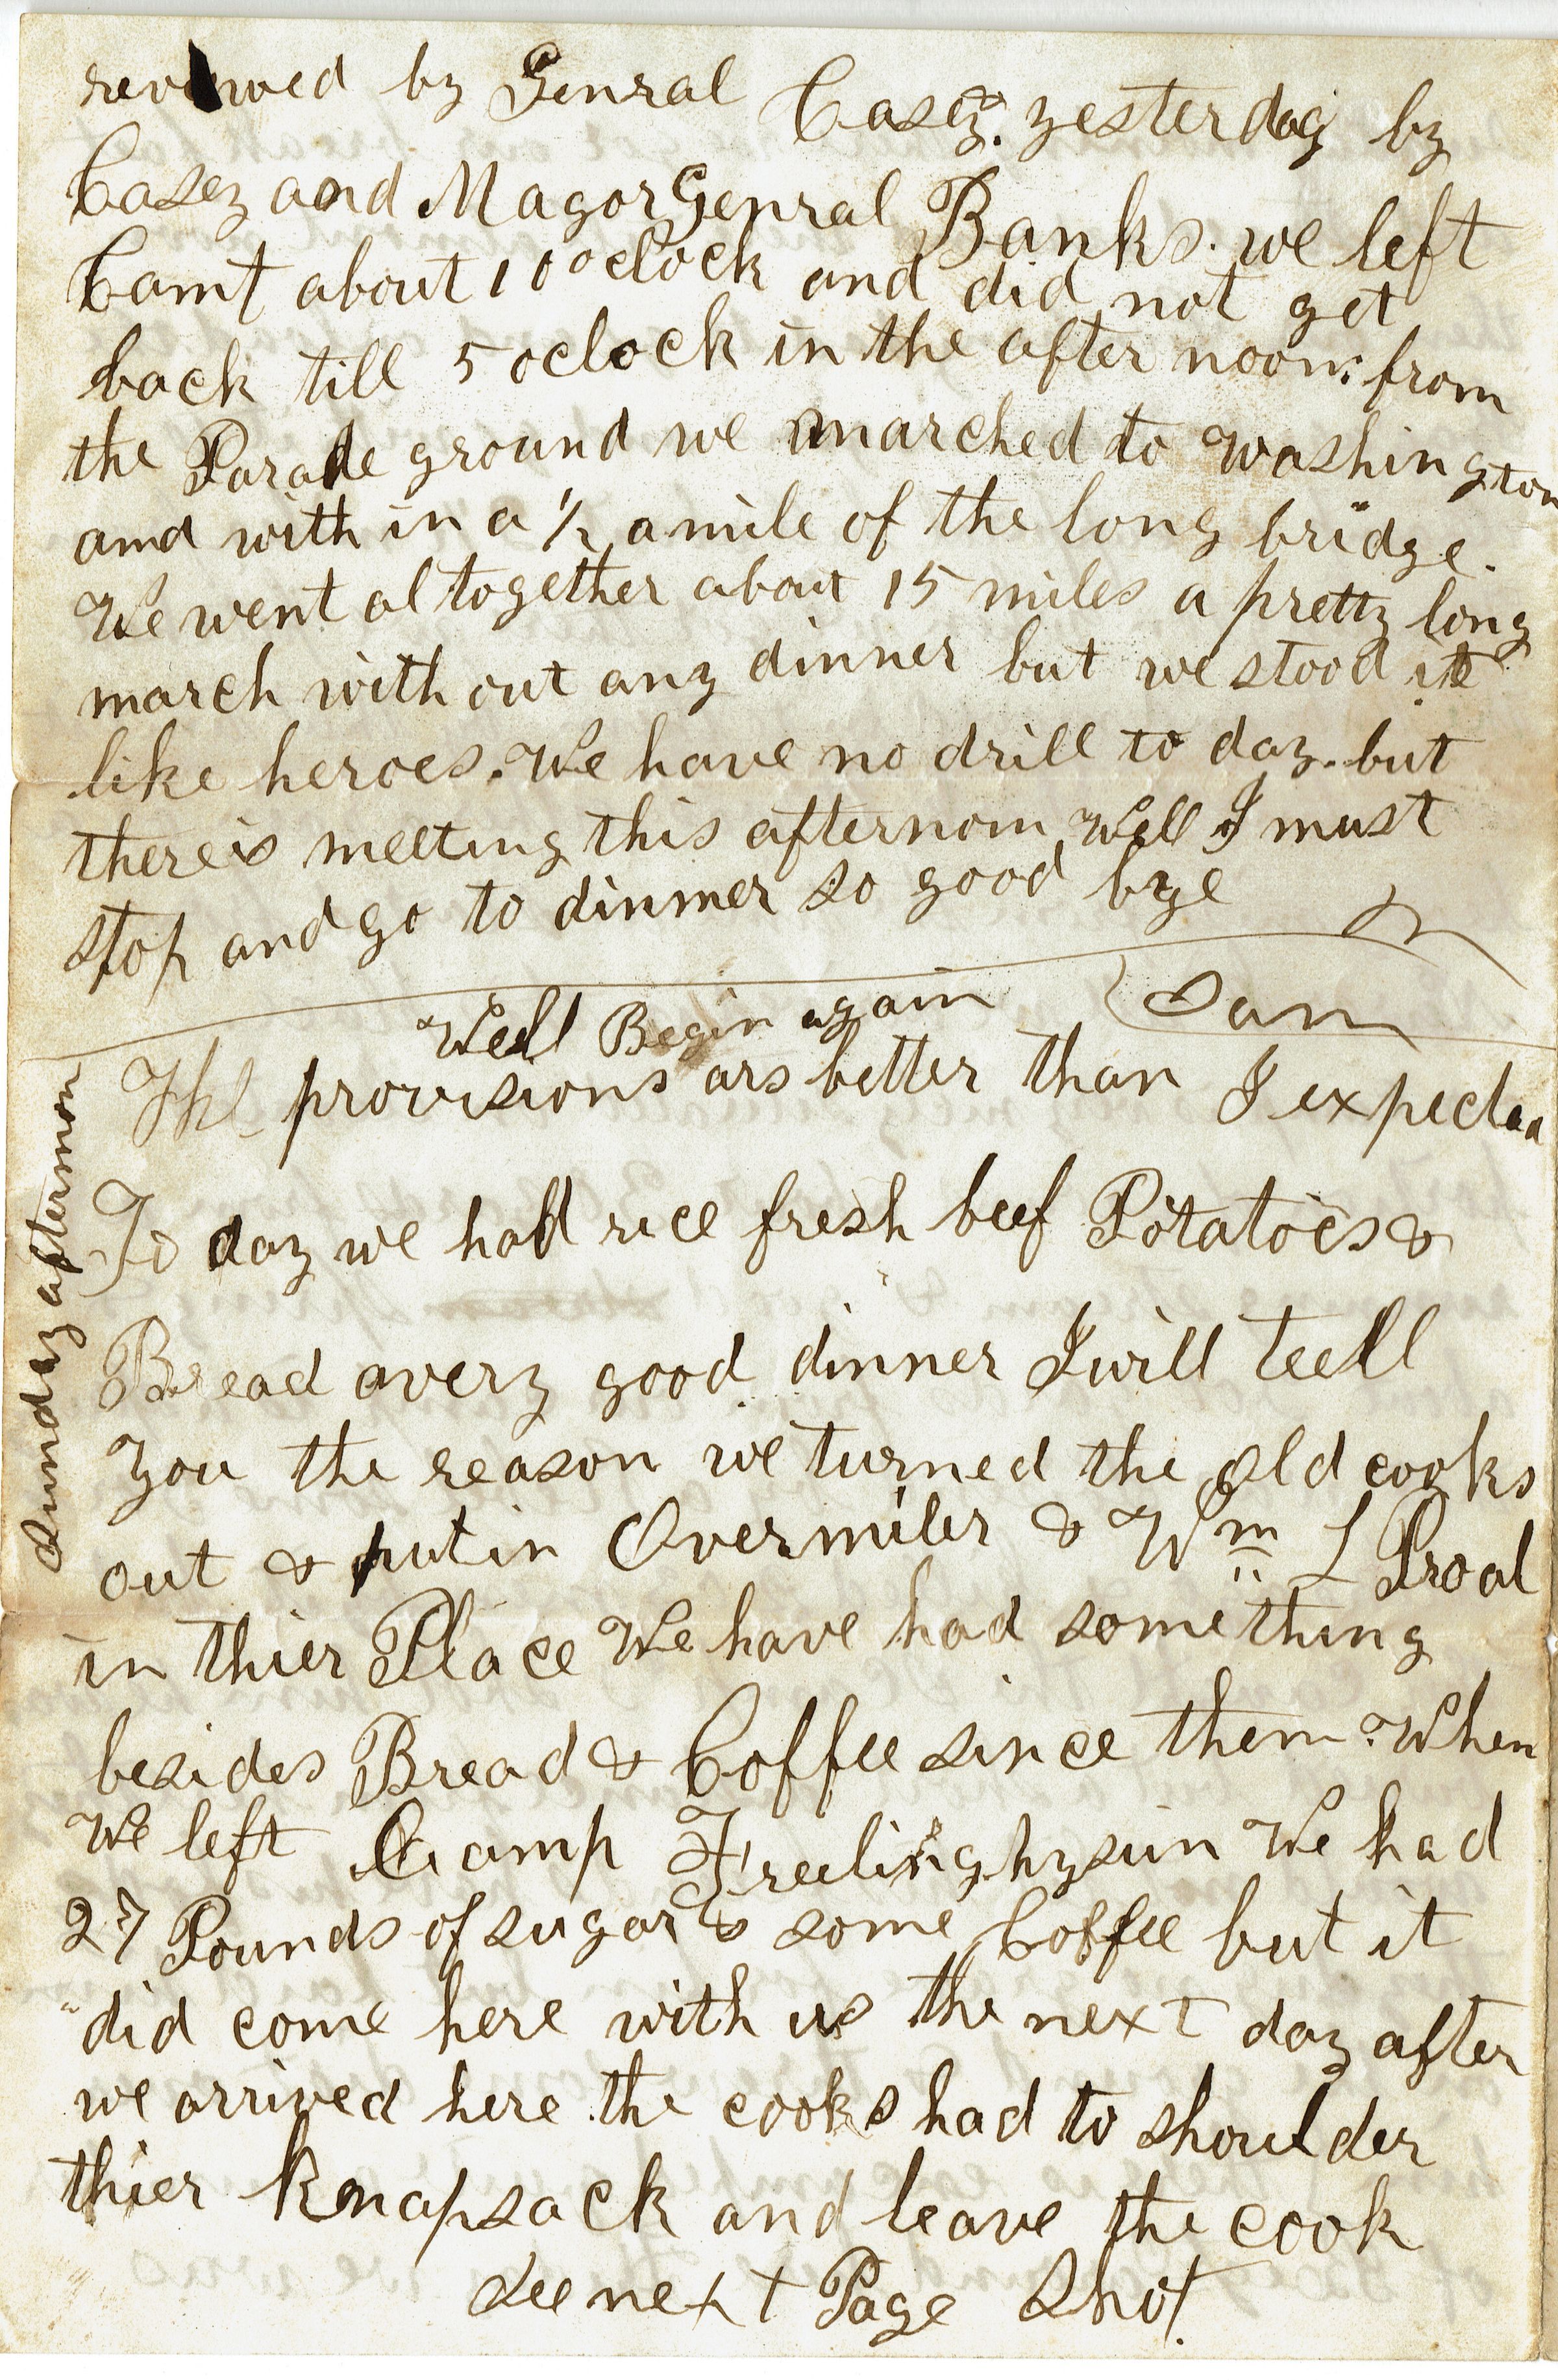 reviewed by Genral Casey. yesterday by
Casey and Magor Genral Banks. we left
Camt about 10 oclock and did not get
back till 5 oclock in the after noon: from
the Parade ground we marched to Washington
and with in a 1/2 a mile of the long bridge.
We went altogether about 15 miles a pretty long
march with out any dinner but we stood it
like heroes. We have no drill to day. but
there is meeting this afternom Well I must
stop and go to dinner so good bye
Dam
Well Begin again
Sunday afternon
The provisions ars better than I expected
To day we had rice fresh beef Potatoes &
Bread avery good dinner I will teell
you the reason we turned the old cooks
out & put in Overmiler & Wm L Proal
in thier Place We have had something
besides Bread & Coffee since them. When
We left Camp Freelinghysuin We had
27 Pounds of sugar & some Coffee but it
did come here with us the next day after
we arrived here the cooks had to shoulder
thier Knapsack and leave the cook
See next Page Shot.